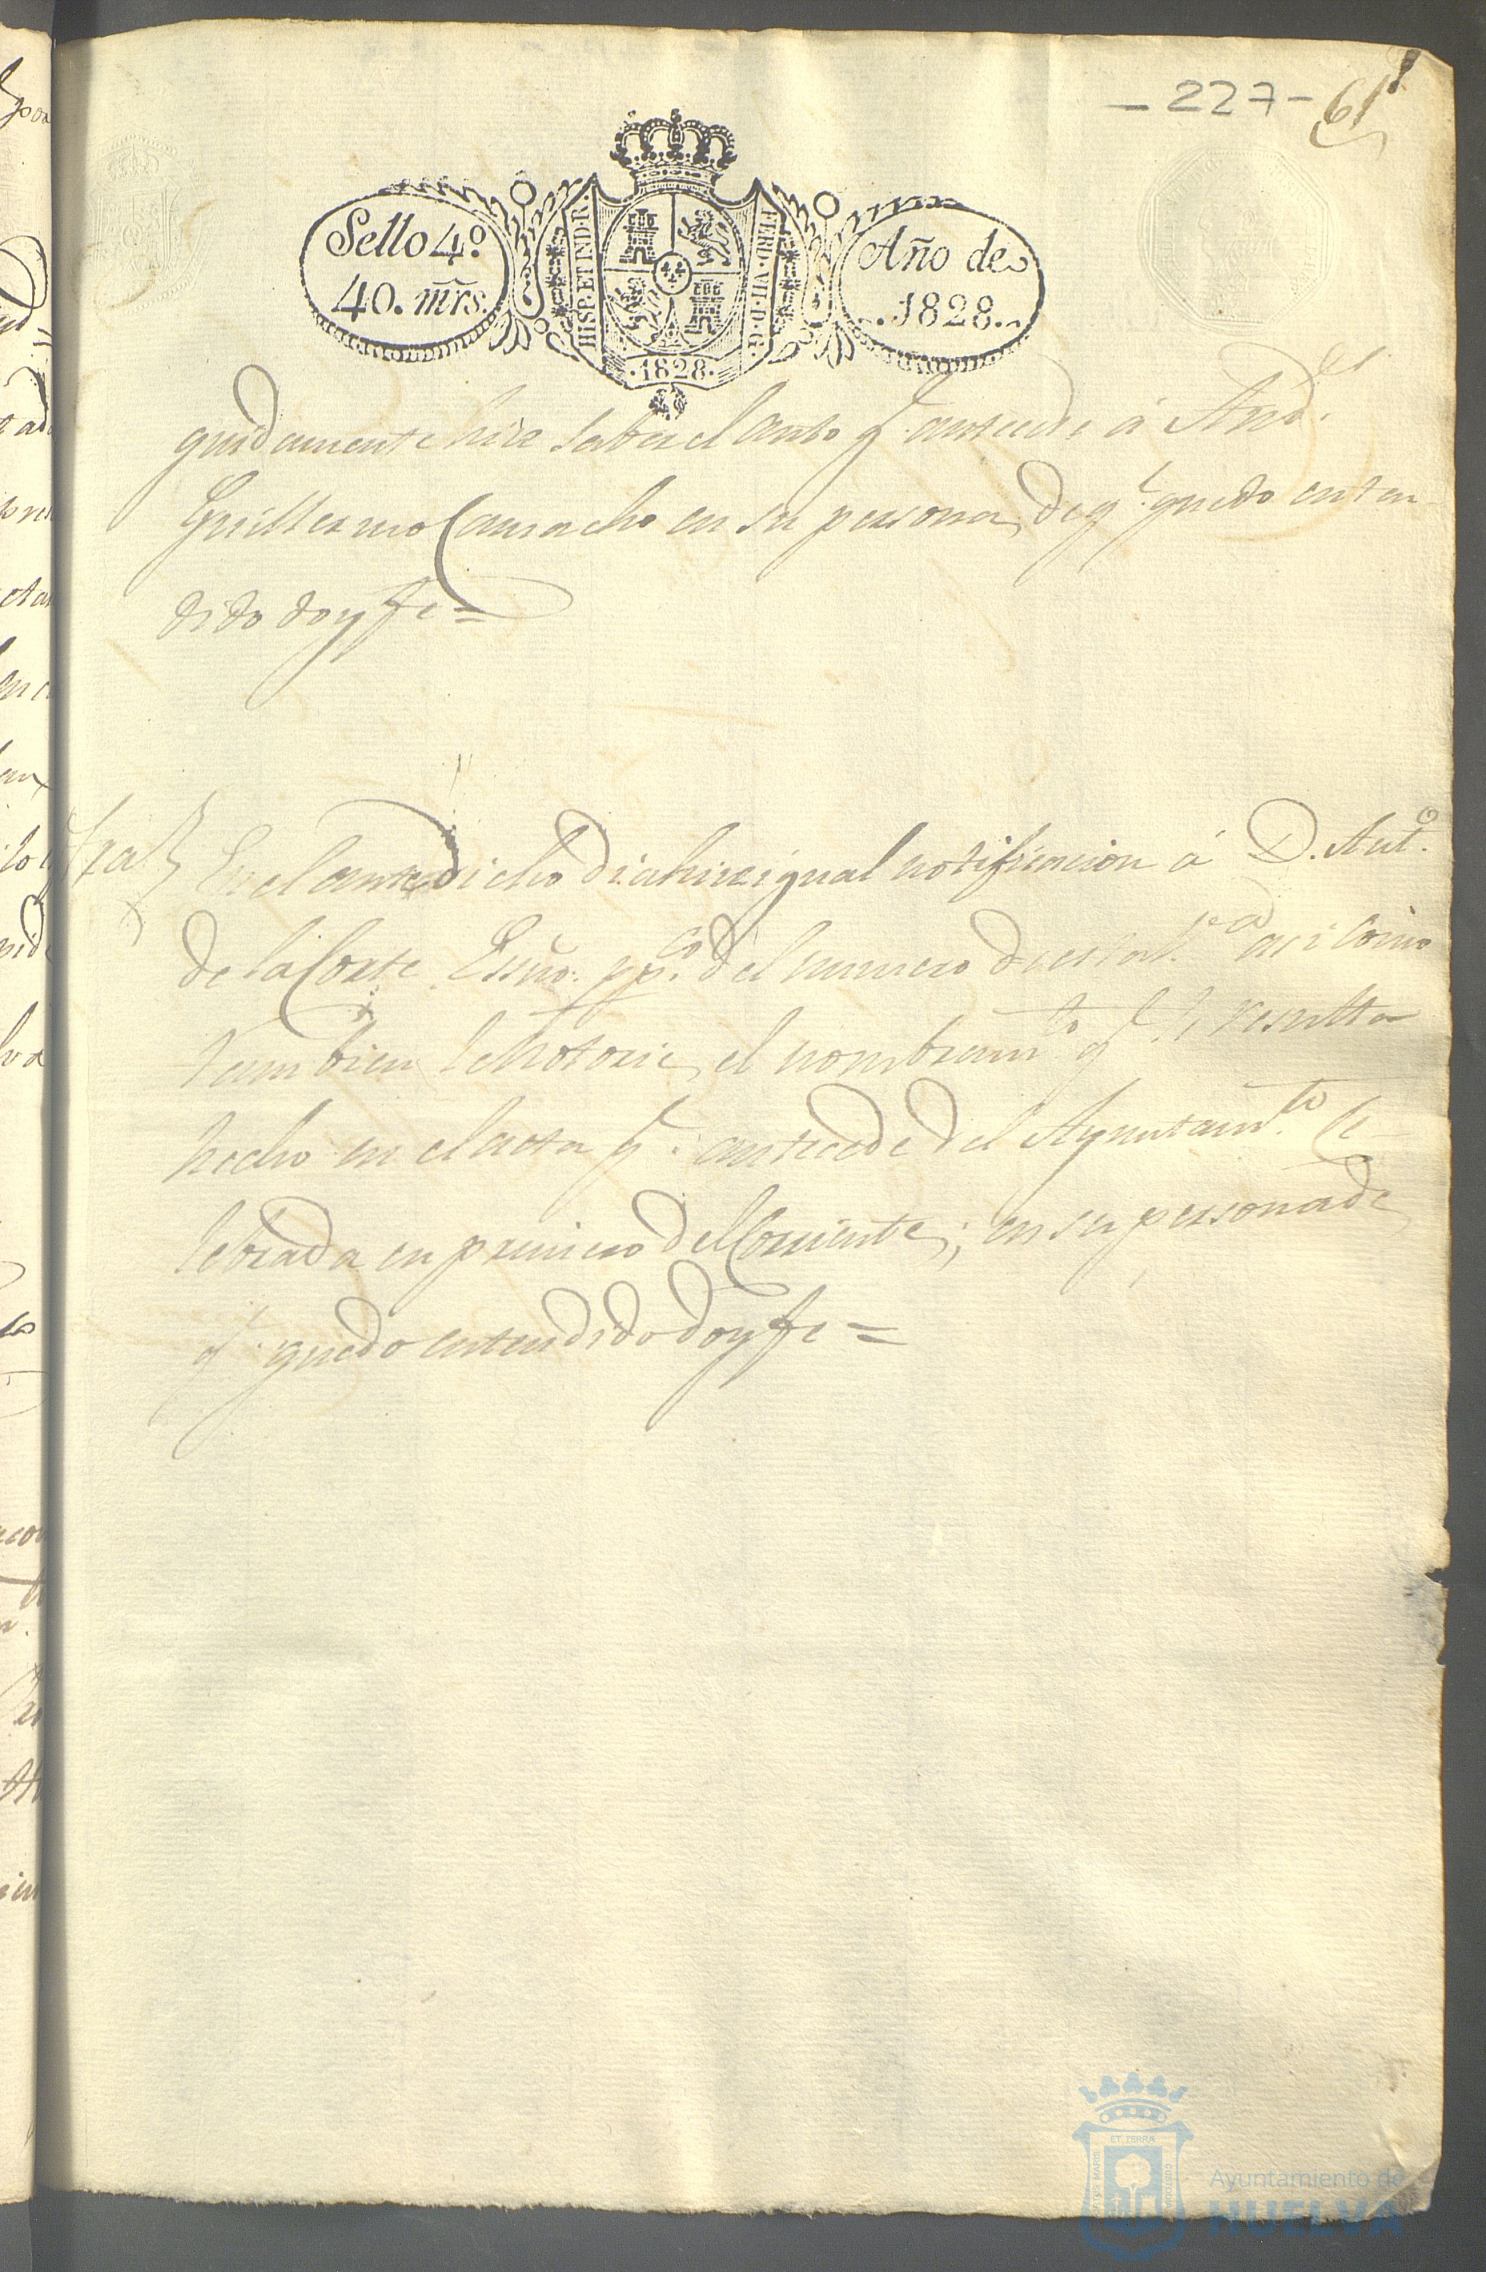 - 227 - 61
Sello 4.º
40. mrs.
HISP. ET IND. R.
FERD. VII. D. G.
.1828.
Año de
.1828.
guidamente hice saber el auto q.e antecede á And.es
Guillermo Camacho en su persona, de q.e quedo enten
dido doy fe =
Otra
En el antedicho dia hice igual notificacion á D. Ant.o
de la Corte Essno. pp.co del numero de esta V.a asi como
tambien le notorie, el nombram.to q.e le resulta
hecho en el acta q.e antecede del Ayuntam.to Ce-
lebrada en primero del Corriente; en su persona de
q.e quedo entendido doy fe =
ET TERRA
Ayuntamiento de
HUELVA